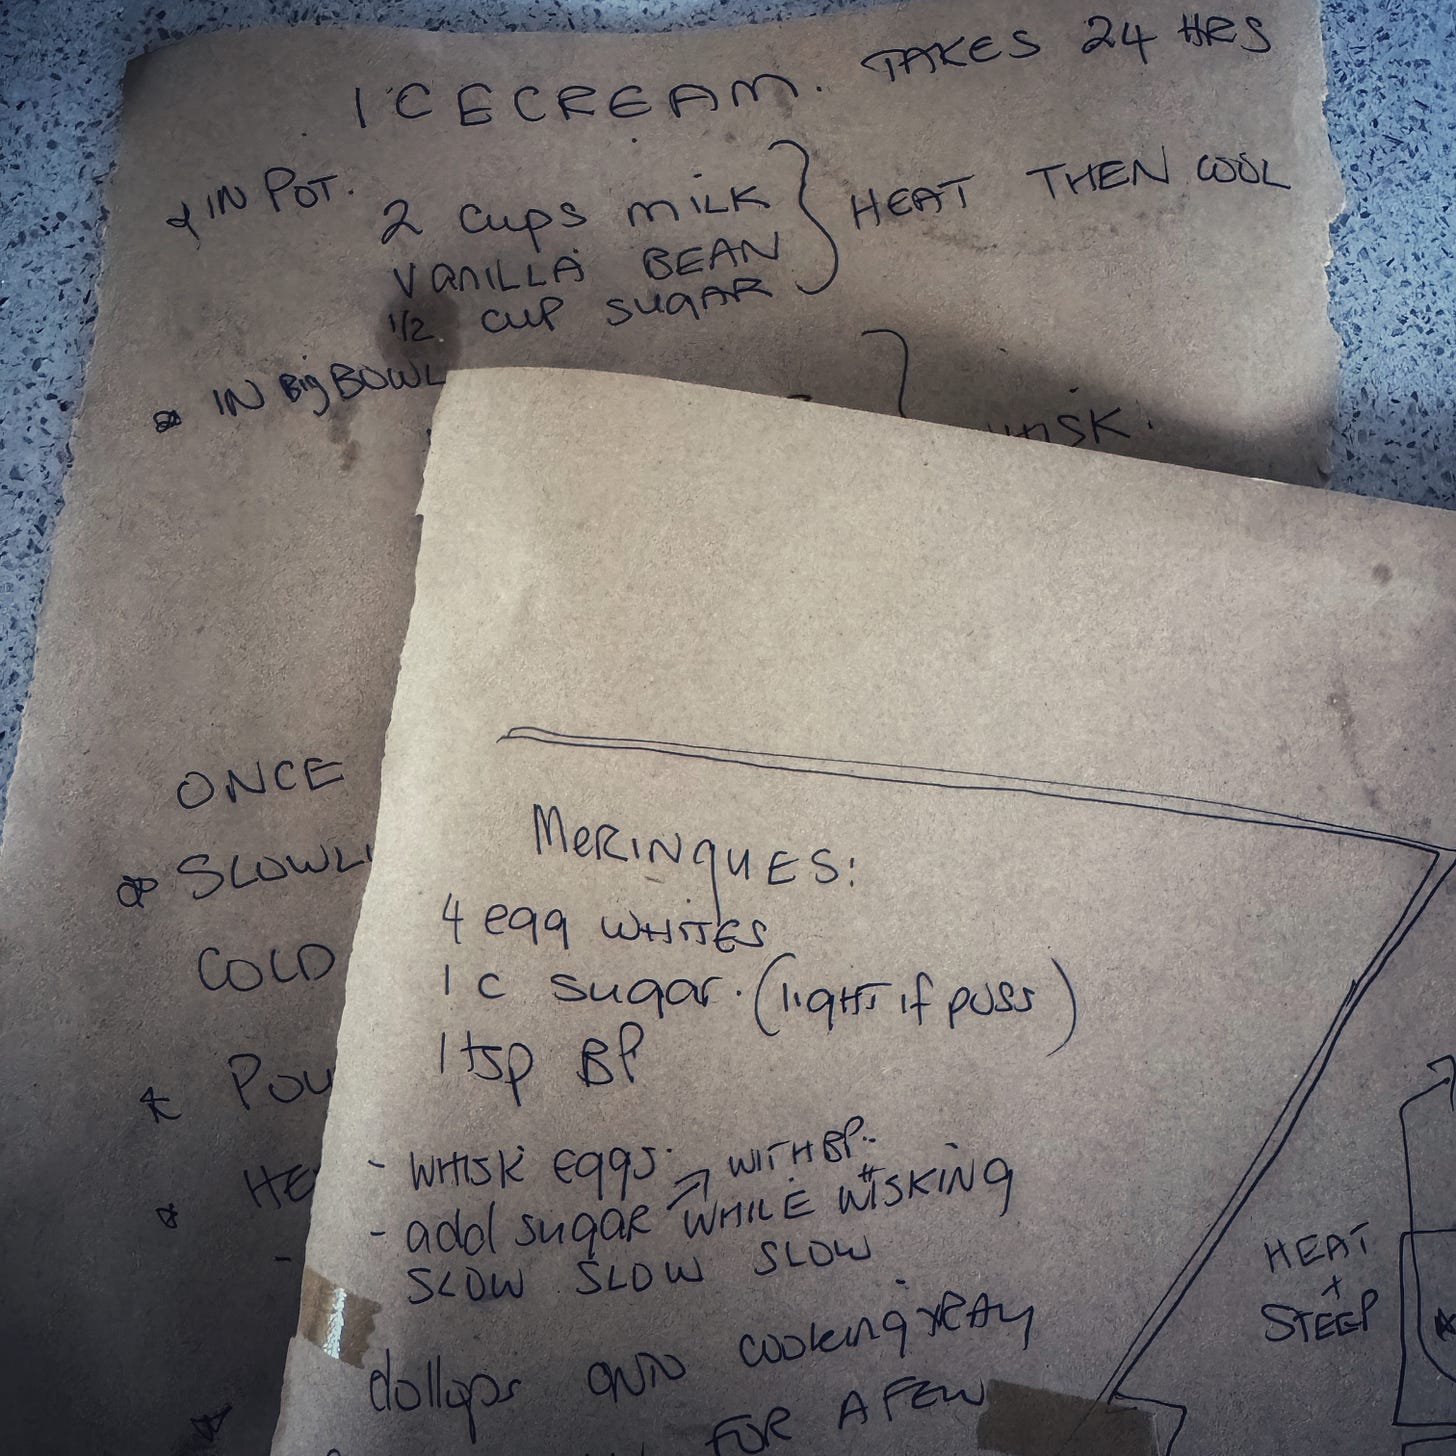 ICECREAM. TAKES 24 HRS
IN POT.
2 cups MILK
VANILLA BEAN
1/2 CUP SUGAR
HEAT THEN COOL
IN Big BOWL
WHISK.
ONCE
SLOWL
COLD
POU
HE
MERINQUES:
4 egg WHITES
1 C SUgar. (lighT if POSS)
1 tsp BP
- WHISK EggS. WITH BP.
- add SUgAR WHILE WHISKINg
SLOW SLOW SLOW
dollops ONTO cookingTRAy
FOR A FEW
HEAT
+
STEEP